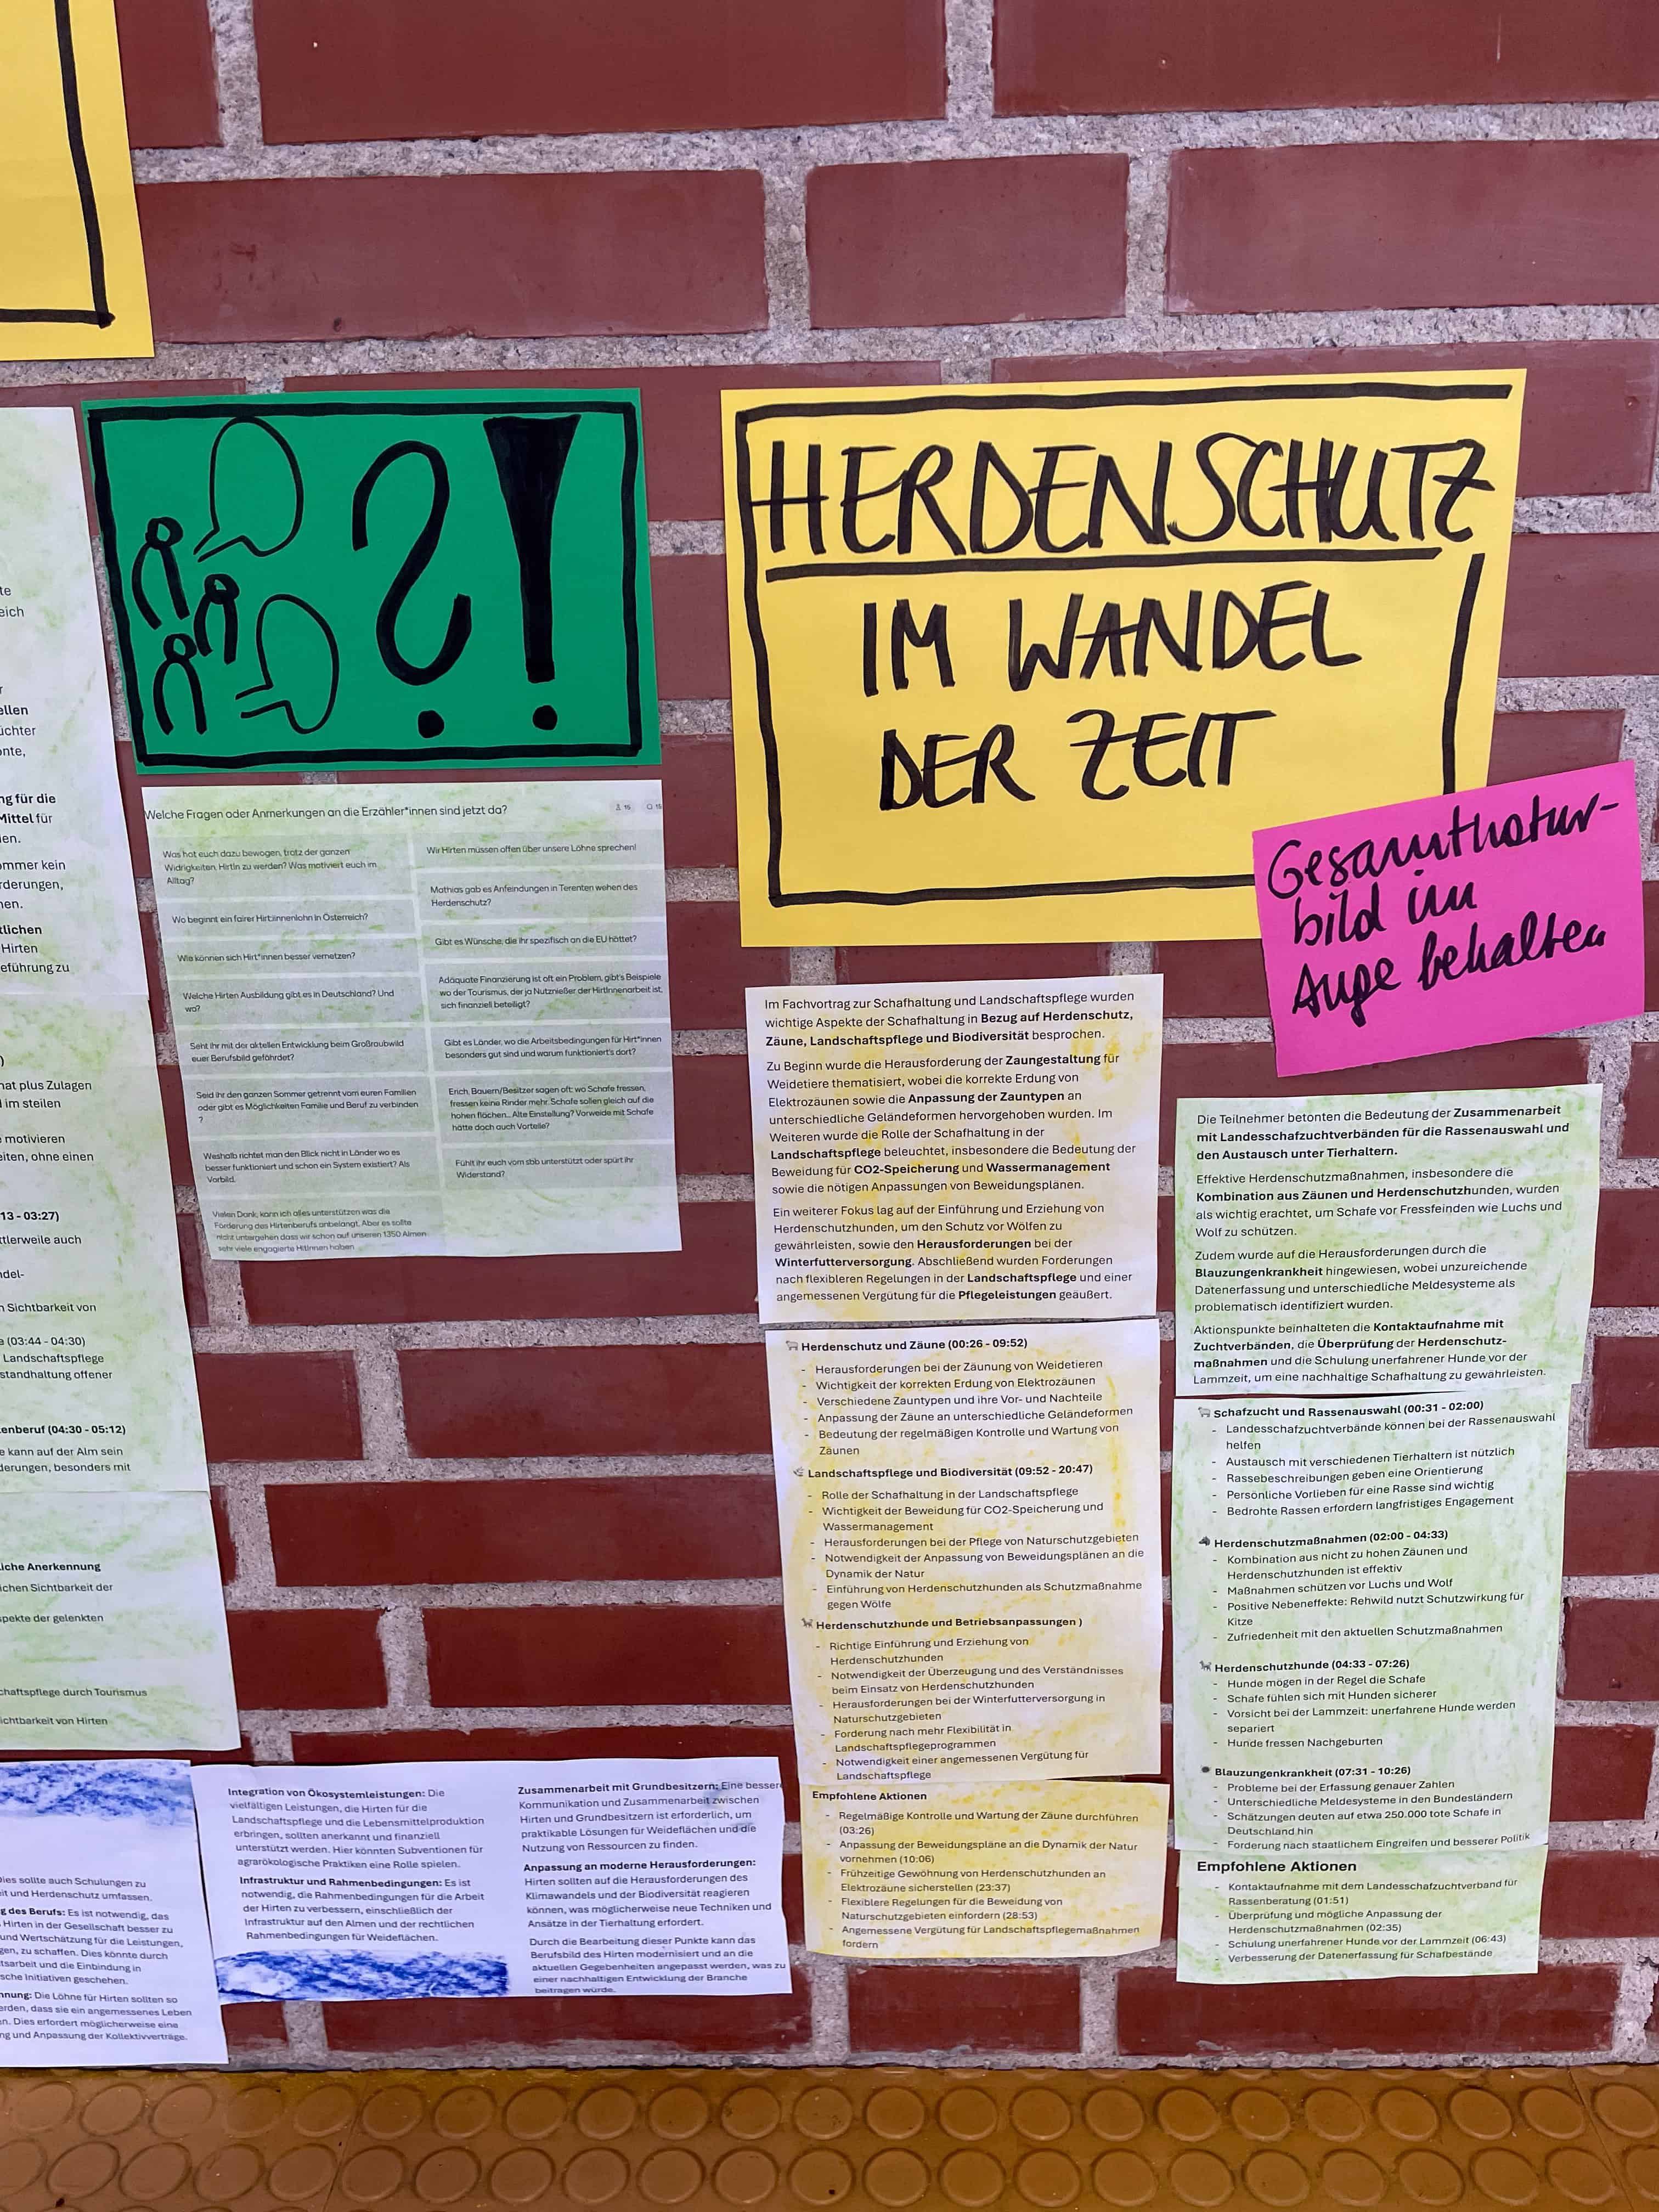 ?!
Welche Fragen oder Anmerkungen an die Erzähler*innen sind jetzt da?
15
15
Was hat euch dazu bewogen, trotz der ganzen
Widrigkeiten, HirtIn zu werden? Was motiviert euch im
Alltag?
Wo beginnt ein fairer Hirt:innenlohn in Österreich?
Wie können sich Hirt*innen besser vernetzen?
Welche Hirten Ausbildung gibt es in Deutschland? Und
wo?
Seht ihr mit der aktellen Entwicklung beim Großraubwild
euer Berufsbild gefährdet?
Seid ihr den ganzen Sommer getrennt vom euren Familien
oder gibt es Möglichkeiten Familie und Beruf zu verbinden
?
Weshalb richtet man den Blick nicht in Länder wo es
besser funktioniert und schon ein System existiert? Als
Vorbild.
Vielen Dank, kann ich alles unterstützen was die
Förderung des Hirtenberufs anbelangt. Aber es sollte
nicht untergehen dass wir schon auf unseren 1350 Almen
sehr viele engagierte HitInnen haben
Wir Hirten müssen offen über unsere Löhne sprechen!
Mathias gab es Anfeindungen in Terenten wehen des
Herdenschutz?
Gibt es Wünsche, die ihr spezifisch an die EU hättet?
Adäquate Finanzierung ist oft ein Problem, gibt's Beispiele
wo der Tourismus, der ja Nutznießer der HirtInnenarbeit ist,
sich finanziell beteiligt?
Gibt es Länder, wo die Arbeitsbedingungen für Hirt*innen
besonders gut sind und warum funktioniert's dort?
Erich, Bauern/Besitzer sagen oft: wo Schafe fressen,
fressen keine Rinder mehr. Schafe sollen gleich auf die
hohen flächen... Alte Einstellung? Vorweide mit Schafe
hätte doch auch Vorteile?
Fühlt ihr euch vom sbb unterstützt oder spürt ihr
Widerstand?
HERDENSCHUTZ
IM WANDEL
DER ZEIT
Gesamtnatur-
bild im
Auge behalten
Im Fachvortrag zur Schafhaltung und Landschaftspflege wurden
wichtige Aspekte der Schafhaltung in Bezug auf Herdenschutz,
Zäune, Landschaftspflege und Biodiversität besprochen.
Zu Beginn wurde die Herausforderung der Zaungestaltung für
Weidetiere thematisiert, wobei die korrekte Erdung von
Elektrozäunen sowie die Anpassung der Zauntypen an
unterschiedliche Geländeformen hervorgehoben wurden. Im
Weiteren wurde die Rolle der Schafhaltung in der
Landschaftspflege beleuchtet, insbesondere die Bedeutung der
Beweidung für CO2-Speicherung und Wassermanagement
sowie die nötigen Anpassungen von Beweidungsplänen.
Ein weiterer Fokus lag auf der Einführung und Erziehung von
Herdenschutzhunden, um den Schutz vor Wölfen zu
gewährleisten, sowie den Herausforderungen bei der
Winterfutterversorgung. Abschließend wurden Forderungen
nach flexibleren Regelungen in der Landschaftspflege und einer
angemessenen Vergütung für die Pflegeleistungen geäußert.
Herdenschutz und Zäune (00:26 - 09:52)
- Herausforderungen bei der Zäunung von Weidetieren
- Wichtigkeit der korrekten Erdung von Elektrozäunen
- Verschiedene Zauntypen und ihre Vor- und Nachteile
- Anpassung der Zäune an unterschiedliche Geländeformen
- Bedeutung der regelmäßigen Kontrolle und Wartung von
Zäunen
Landschaftspflege und Biodiversität (09:52 - 20:47)
- Rolle der Schafhaltung in der Landschaftspflege
- Wichtigkeit der Beweidung für CO2-Speicherung und
Wassermanagement
- Herausforderungen bei der Pflege von Naturschutzgebieten
- Notwendigkeit der Anpassung von Beweidungsplänen an die
Dynamik der Natur
- Einführung von Herdenschutzhunden als Schutzmaßnahme
gegen Wölfe
Herdenschutzhunde und Betriebsanpassungen )
- Richtige Einführung und Erziehung von
Herdenschutzhunden
- Notwendigkeit der Überzeugung und des Verständnisses
beim Einsatz von Herdenschutzhunden
- Herausforderungen bei der Winterfutterversorgung in
Naturschutzgebieten
- Forderung nach mehr Flexibilität in
Landschaftspflegeprogrammen
- Notwendigkeit einer angemessenen Vergütung für
Landschaftspflege
Empfohlene Aktionen
- Regelmäßige Kontrolle und Wartung der Zäune durchführen
(03:26)
- Anpassung der Beweidungspläne an die Dynamik der Natur
vornehmen (10:06)
- Frühzeitige Gewöhnung von Herdenschutzhunden an
Elektrozäune sicherstellen (23:37)
- Flexiblere Regelungen für die Beweidung von
Naturschutzgebieten einfordern (28:53)
- Angemessene Vergütung für Landschaftspflegemaßnahmen
fordern
Die Teilnehmer betonten die Bedeutung der Zusammenarbeit
mit Landesschafzuchtverbänden für die Rassenauswahl und
den Austausch unter Tierhaltern.
Effektive Herdenschutzmaßnahmen, insbesondere die
Kombination aus Zäunen und Herdenschutzhunden, wurden
als wichtig erachtet, um Schafe vor Fressfeinden wie Luchs und
Wolf zu schützen.
Zudem wurde auf die Herausforderungen durch die
Blauzungenkrankheit hingewiesen, wobei unzureichende
Datenerfassung und unterschiedliche Meldesysteme als
problematisch identifiziert wurden.
Aktionspunkte beinhalteten die Kontaktaufnahme mit
Zuchtverbänden, die Überprüfung der Herdenschutz-
maßnahmen und die Schulung unerfahrener Hunde vor der
Lammzeit, um eine nachhaltige Schafhaltung zu gewährleisten.
Schafzucht und Rassenauswahl (00:31 - 02:00)
- Landesschafzuchtverbände können bei der Rassenauswahl
helfen
- Austausch mit verschiedenen Tierhaltern ist nützlich
- Rassebeschreibungen geben eine Orientierung
- Persönliche Vorlieben für eine Rasse sind wichtig
- Bedrohte Rassen erfordern langfristiges Engagement
Herdenschutzmaßnahmen (02:00 - 04:33)
- Kombination aus nicht zu hohen Zäunen und
Herdenschutzhunden ist effektiv
- Maßnahmen schützen vor Luchs und Wolf
- Positive Nebeneffekte: Rehwild nutzt Schutzwirkung für
Kitze
- Zufriedenheit mit den aktuellen Schutzmaßnahmen
Herdenschutzhunde (04:33 - 07:26)
- Hunde mögen in der Regel die Schafe
- Schafe fühlen sich mit Hunden sicherer
- Vorsicht bei der Lammzeit: unerfahrene Hunde werden
separiert
- Hunde fressen Nachgeburten
Blauzungenkrankheit (07:31 - 10:26)
- Probleme bei der Erfassung genauer Zahlen
- Unterschiedliche Meldesysteme in den Bundesländern
- Schätzungen deuten auf etwa 250.000 tote Schafe in
Deutschland hin
- Forderung nach staatlichem Eingreifen und besserer Politik
Empfohlene Aktionen
- Kontaktaufnahme mit dem Landesschafzuchtverband für
Rassenberatung (01:51)
- Überprüfung und mögliche Anpassung der
Herdenschutzmaßnahmen (02:35)
- Schulung unerfahrener Hunde vor der Lammzeit (06:43)
- Verbesserung der Datenerfassung für Schafbestände
Integration von Ökosystemleistungen: Die
vielfältigen Leistungen, die Hirten für die
Landschaftspflege und die Lebensmittelproduktion
erbringen, sollten anerkannt und finanziell
unterstützt werden. Hier könnten Subventionen für
agrarökologische Praktiken eine Rolle spielen.
Infrastruktur und Rahmenbedingungen: Es ist
notwendig, die Rahmenbedingungen für die Arbeit
der Hirten zu verbessern, einschließlich der
Infrastruktur auf den Almen und der rechtlichen
Rahmenbedingungen für Weideflächen.
Zusammenarbeit mit Grundbesitzern: Eine besser
Kommunikation und Zusammenarbeit zwischen
Hirten und Grundbesitzern ist erforderlich, um
praktikable Lösungen für Weideflächen und die
Nutzung von Ressourcen zu finden.
Anpassung an moderne Herausforderungen:
Hirten sollten auf die Herausforderungen des
Klimawandels und der Biodiversität reagieren
können, was möglicherweise neue Techniken und
Ansätze in der Tierhaltung erfordert.
Durch die Bearbeitung dieser Punkte kann das
Berufsbild des Hirten modernisiert und an die
aktuellen Gegebenheiten angepasst werden, was zu
einer nachhaltigen Entwicklung der Branche
beitragen würde.
ng für die
Mittel für
ommer kein
rderungen,
tlichen
Hirten
eführung zu
nat plus Zulagen
im steilen
motivieren
eiten, ohne einen
13 - 03:27)
ttlerweile auch
ndel-
Sichtbarkeit von
(03:44 - 04:30)
Landschaftspflege
standhaltung offener
enberuf (04:30 - 05:12)
e kann auf der Alm sein
derungen, besonders mit
iche Anerkennung
ichen Sichtbarkeit der
pekte der gelenkten
chaftspflege durch Tourismus
ichtbarkeit von Hirten
ies sollte auch Schulungen zu
it und Herdenschutz umfassen.
g des Berufs: Es ist notwendig, das
Hirten in der Gesellschaft besser zu
und Wertschätzung für die Leistungen,
gen, zu schaffen. Dies könnte durch
tsarbeit und die Einbindung in
sche Initiativen geschehen.
nnung: Die Löhne für Hirten sollten so
erden, dass sie ein angemessenes Leben
n. Dies erfordert möglicherweise eine
ng und Anpassung der Kollektivverträge.